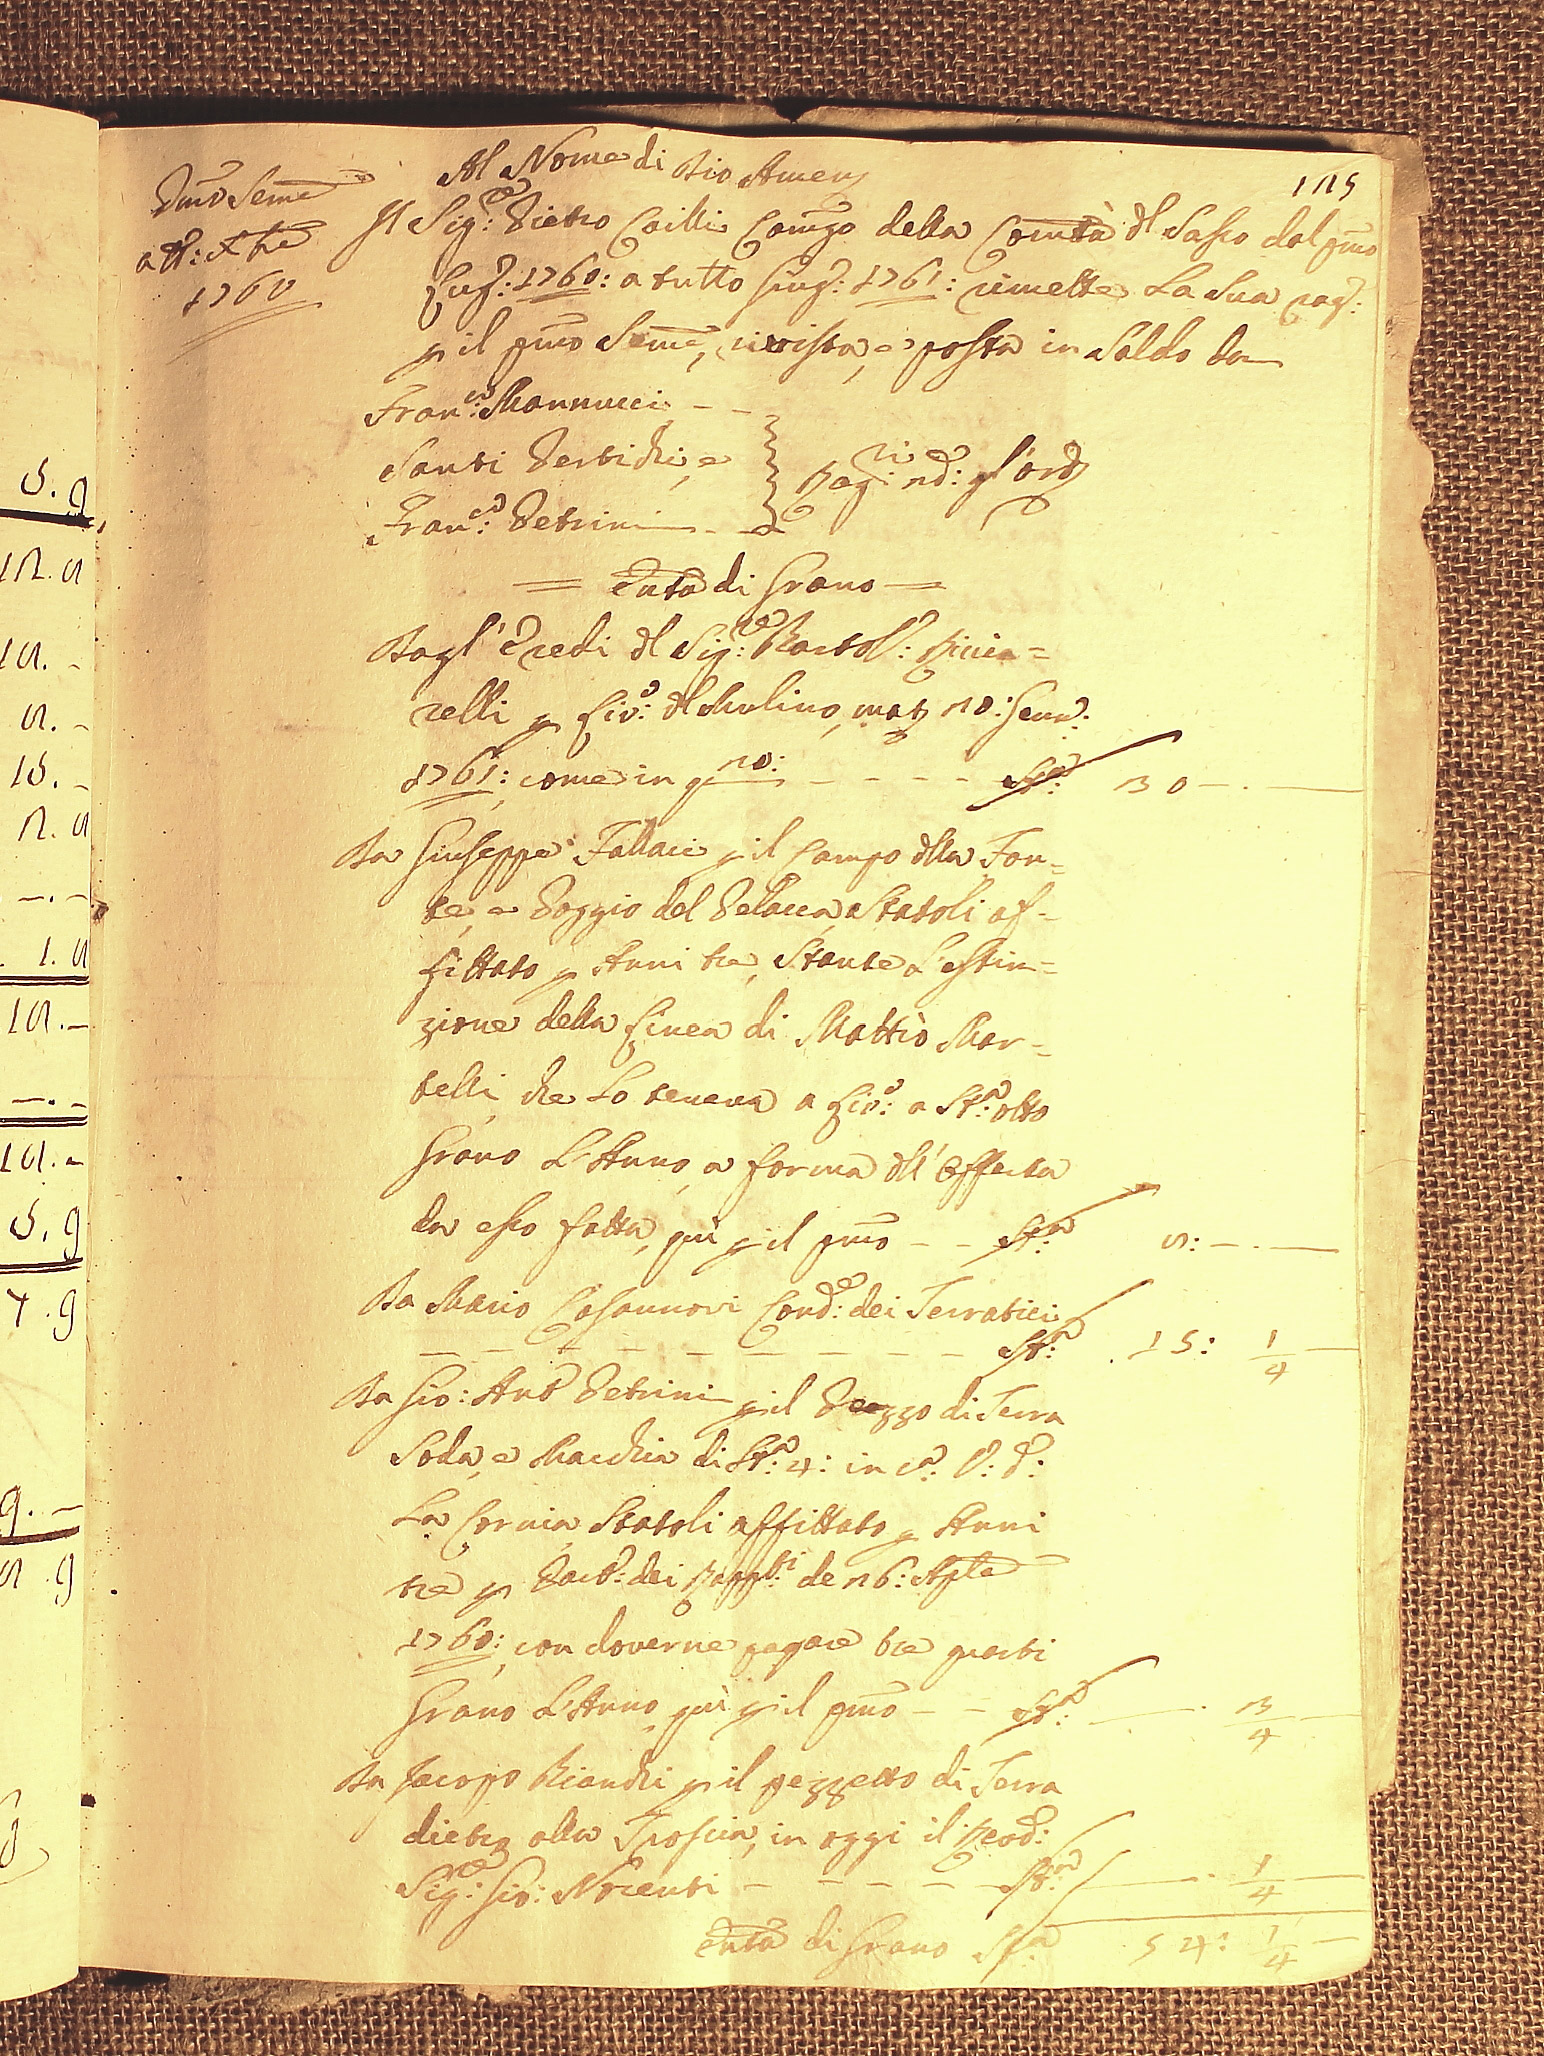 Al Nome di Dio Amen
125
Pmo Seme
a tt: Xbre
1760
Il Sig:re Pietro Cailli Camgo della Comtà dl Sasso dal pmo
Lug: 1760: a tutto Giug: 1761: rimette La Sua rag:
p il pmo Seme, rivista, e posta in Saldo da
Fran:co Mannucci
Santi Pertichi, e
Fran:co Petrini
Rag:ri nd: p l'ord
Enta di Grano
Dagl' Eredi dl Sig:re Bartol:
relli p Liv:o dl Mulino, mat 20: Genn:
1761: come in q 20: St:a 30
Da Giuseppe Fallaci p il Campo dlla Fon=
te, e Poggio del Pelacca, Statoli af=
fittato p Anni tre, Stante L'estin=
zione della Linea di Mattio Mar=
telli che Lo teneva a Liv:o a St:a otto
Grano L'Anno, a forma dll' Offerta
da esso fatta, qui p il pmo St:a 8:
Da Mario Casannovi Cond:e dei Terratici
St:a 15: 1/4
Da Gio: Anto Petrini p il Pezzo di Terra
Soda, e Macchia di St:a 4: in ca: V: d:
La Cornia Statoli affittato p Anni
tre p Part:o dei Rapp:ti de 26: Agle
1760: con doverne pagare tre quarti
Grano L'Anno, qui p il pmo St:a 3/4
Da Jacopo Bianchi p il pezzetto di Terra
dietro alla Troscia, in oggi il Revd:
Sig:re Gio: Nocenti St:a 1/4
Enta di Grano St:a 54: 1/4
5. 9
12. 2
12. -
2. -
15. -
2. 2
1. 2
12. -
12. -
5. 9
7. 9
9. -
2. 9